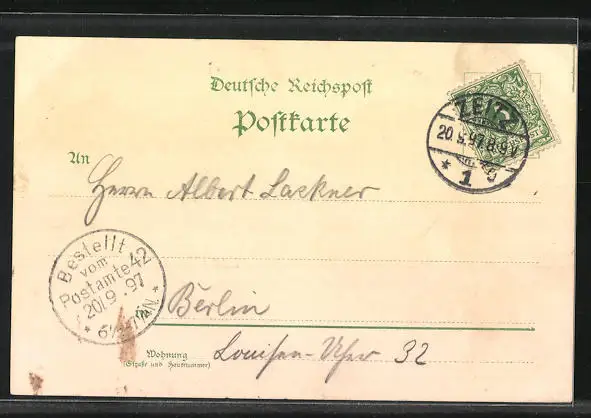 Deutsche Reichspost
Postkarte
ZEITZ
20.9.97.8-9V
* 1 c
An
Herrn Albert Lackner
Bestellt
vom
Postamte 42
20/9.97
Berlin
Wohnung
(Straße und Hausnummer)
Louisen-Ufer 32